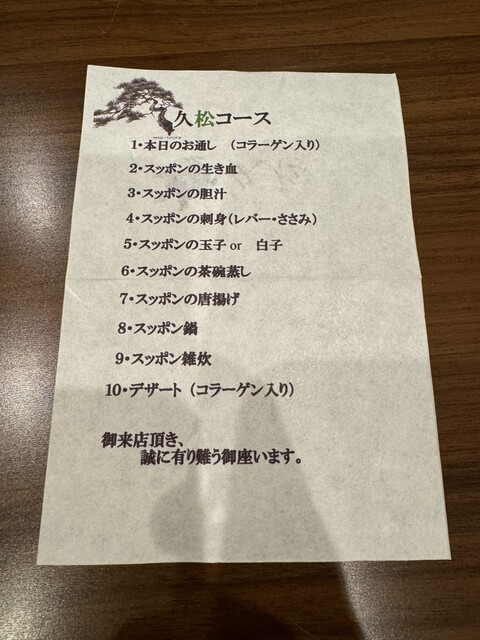 久松コース
1・本日のお通し （コラーゲン入り）
2・スッポンの生き血
3・スッポンの胆汁
4・スッポンの刺身（レバー・ささみ）
5・スッポンの玉子 or 白子
6・スッポンの茶碗蒸し
7・スッポンの唐揚げ
8・スッポン鍋
9・スッポン雑炊
10・デザート （コラーゲン入り）
御来店頂き、
誠に有り難う御座います。